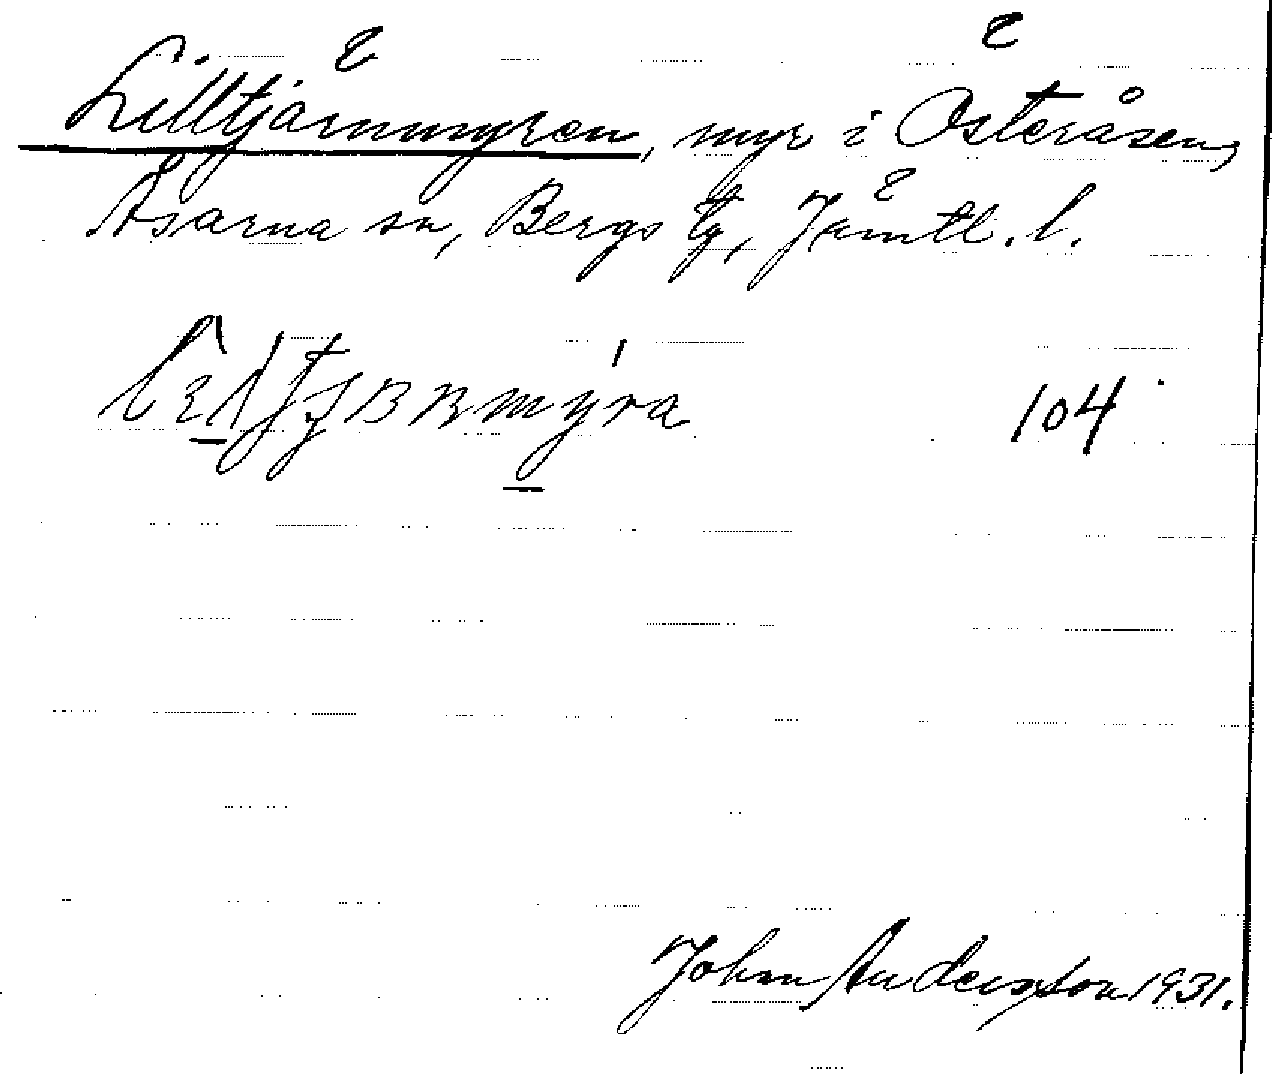 Lilltjärnmyren, myr i Österåsen,
Åsarna sn, Bergs tg, Jämtl. l.
104
John Andersson 1931.